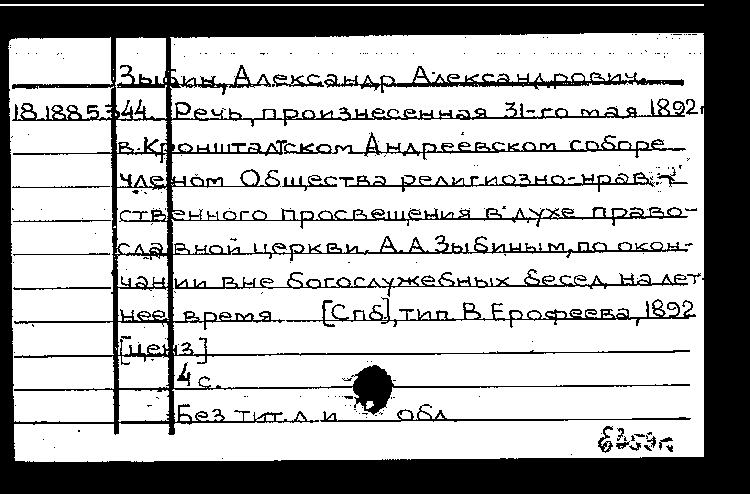 Зыбин, Александр Александрович.
18.188.5.344. Речь, произнесенная 31-го мая 1892г
в Кронштадтском Андреевском соборе
членом Общества религиозно-нрав-
ственного просвещения в духе право-
славной церкви, А.А. Зыбиным, по окон-
чании вне богослужебных бесед на лет-
нее время. [Спб], тип В. Ерофеева, 1892
[ценз]
4 с.
Без тит. л. и обл.